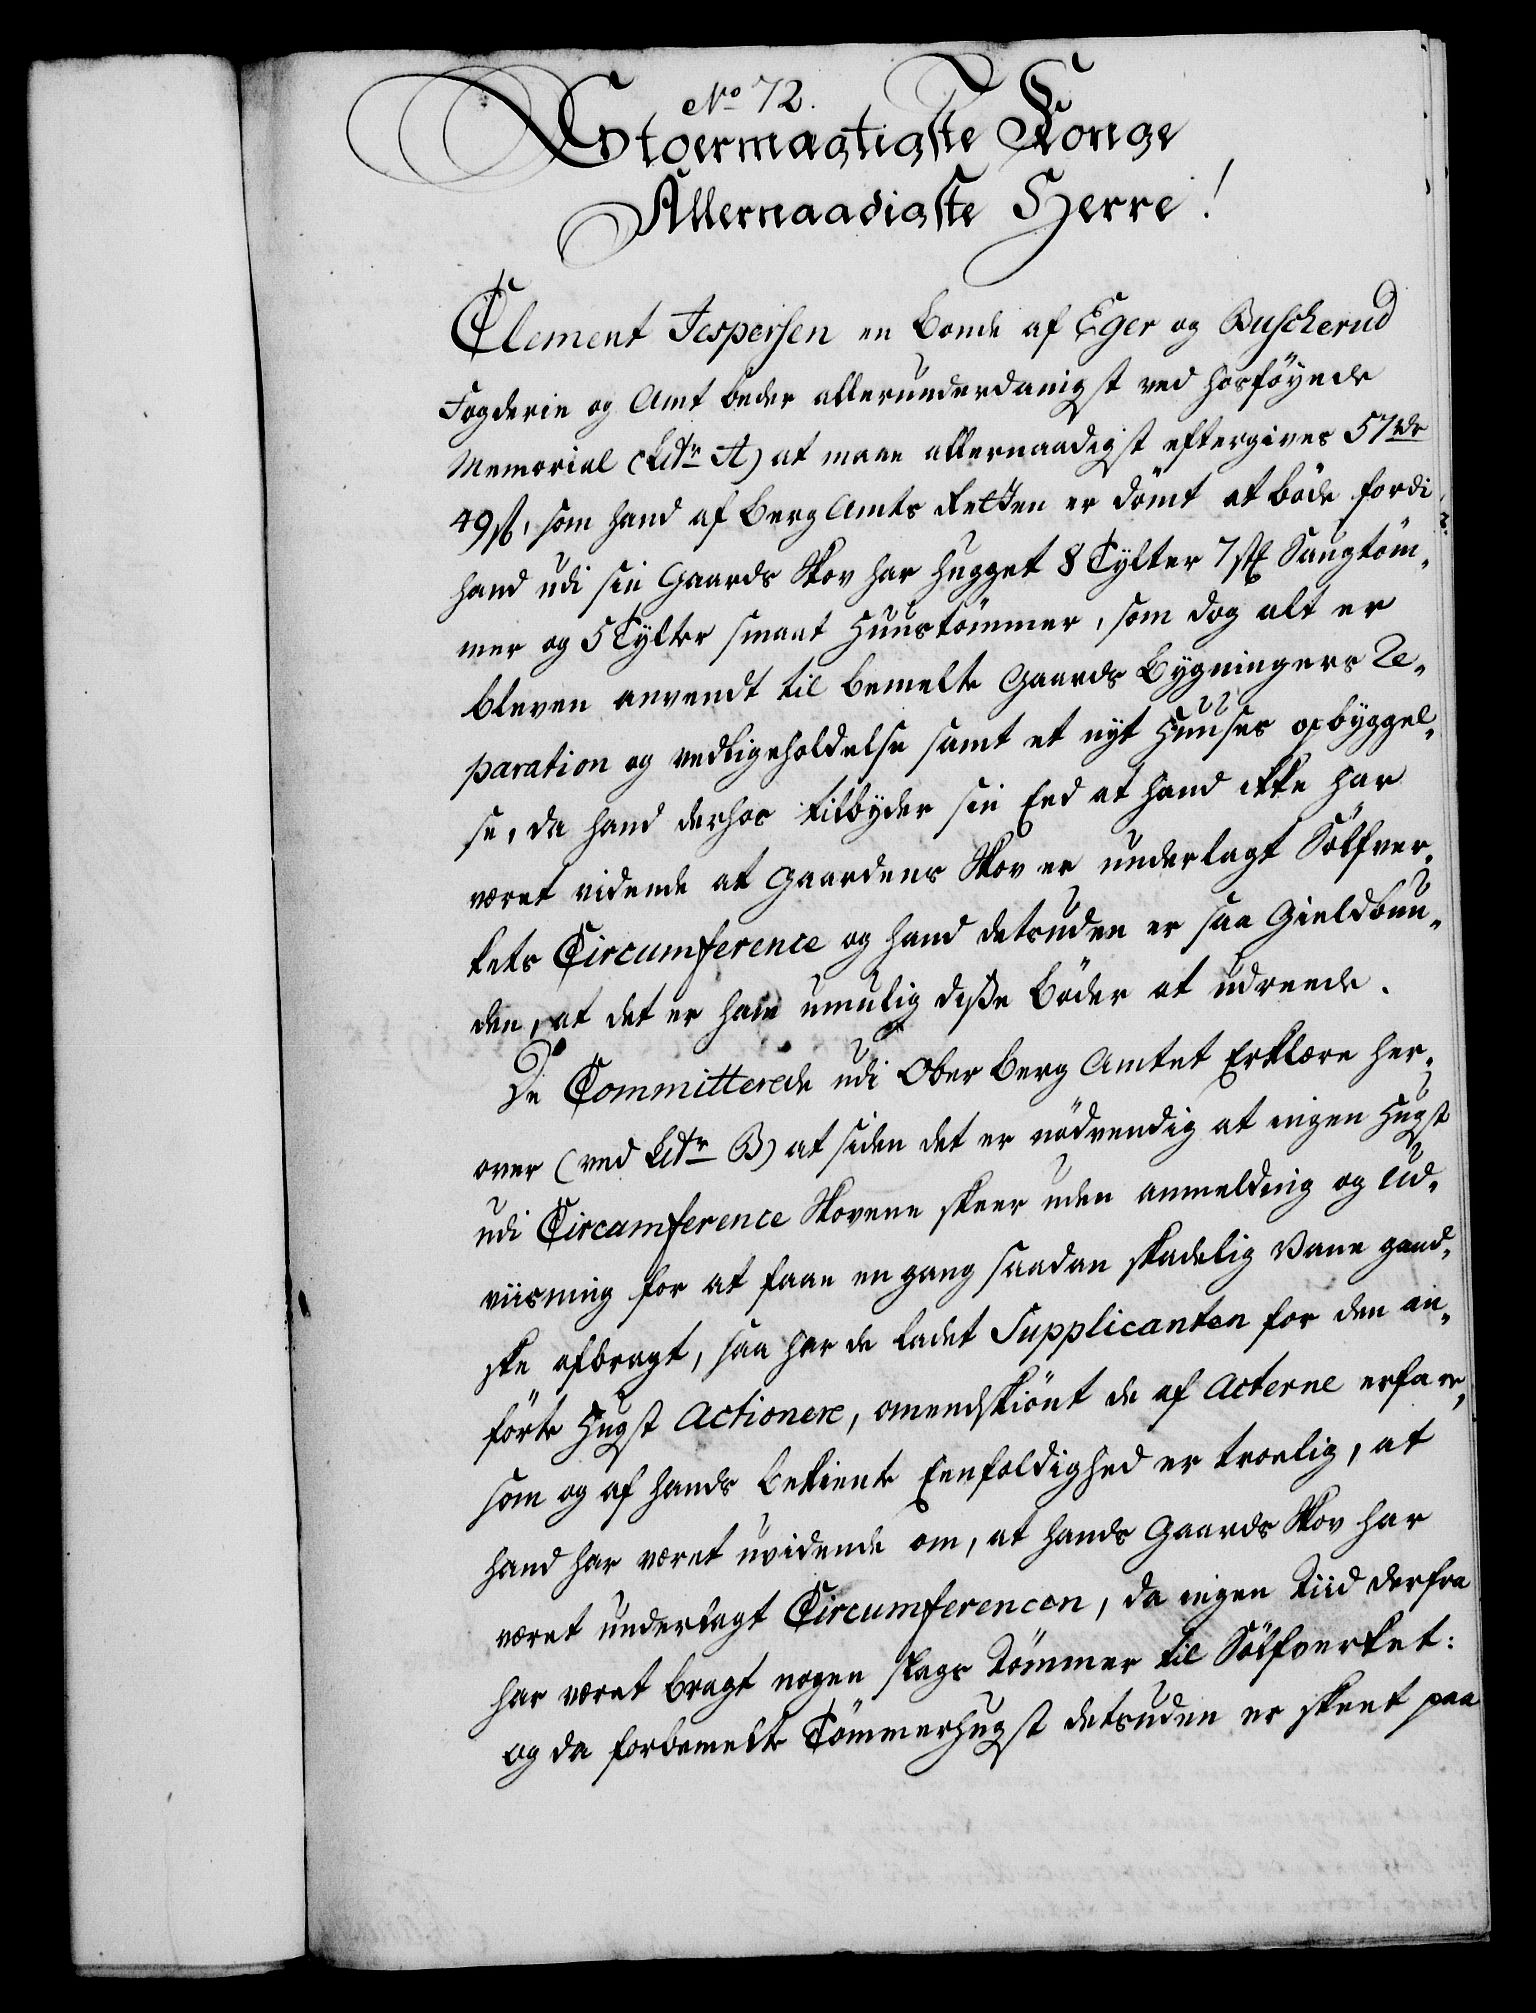 No 72.
Stoermagtigste Konge
Allernaadigste Herre!
Clement Jespersen en Bonde af Eger og Buscherud
Fogderie og Amt beder allerunderdanigst ved hosföyede
Memorial (Litr A) at maae allernaadigst eftergives 57 rdr
49 ß, som hand af Berg Amts Retten er dömt at böde fordi
hand udi sin Gaards Skov har hugget 8 Tylter 7 st Saugtöm-
mer og 5 Tylter smaat Huustömmer, som dog alt er
bleven anvendt til bemelte Gaards Bygningers Re-
paration og vedligeholdelse samt et nyt Huuses opbyggel-
se, da hand derhos tilbyder sin Eed at hand ikke har
været vidende at Gaardens Skov er underlagt Sölfver-
kets Circumference og hand detsuden er saa Gieldbun-
den, at det er ham umulig disse Böder at udreede.
De Committerede udi Ober Berg Amtet Erklære her-
over (ved Litr B) at siden det er nödvendig at ingen Hugst
udi Circumference Skovene skeer uden anmelding og Ud-
viisning for at faae en gang saadan skadelig Vane gand-
ske afbragt, saa har de ladet Supplicanten for den an-
förte Hugst Actionere, omendskiönt de af Acterne erfare,
som og af hands bekiente Eenfoldighed er troelig, at
hand har været uvidende om, at hands Gaards Skov har
været underlagt Circumferencen, da ingen Tiid derfra
har været bragt nogen slags Tömmer til Sölfverket:
og da forbemelte Tömmerhugst detsuden er skeet paa